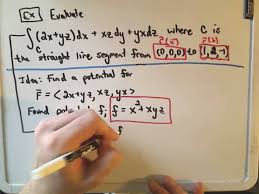 Ex Evaluate
∫_C (2x+yz)dx + xz dy + yx dz where C is
r̄(a) r̄(b)
the straight line segment from (0,0,0) to (1,2,-1)
Idea: Find a potential for
F̄ = <2x+yz, xz, yx>
Found potential f: f = x² + xyz
f